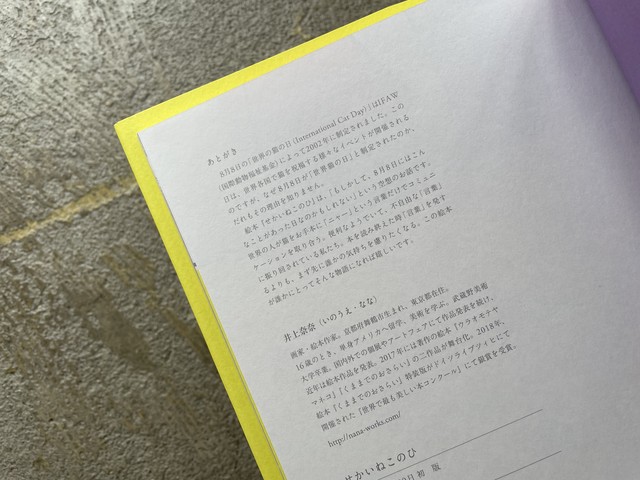 あとがき
8月8日の「世界の猫の日（International Cat Day）」はIFAW
（国際動物福祉基金）によって2002年に制定されました。この
日は、世界各国で猫を祝福する様々なイベントが開催される
のですが、なぜ8月8日が「世界猫の日」と制定されたのか、
だれもその理由を知りません。
絵本『せかいねこのひ』は、「もしかして、8月8日にはこん
なことがあった日なのかもしれない」という空想のお話です。
世界の人が猫をお手本に「ニャー」という言葉だけでコミュニ
ケーションを取り合う。便利なようでいて、不自由な「言葉」
に振り回されている私たち。本を読み終えた時「言葉」を発す
るよりも、まず先に誰かの気持ちを慮りたくなる。この絵本
が誰かにとってそんな物語になれば嬉しいです。
井上奈奈（いのうえ・なな）
画家・絵本作家。京都府舞鶴市生まれ、東京都在住。
16歳のとき、単身アメリカへ留学、美術を学ぶ。武蔵野美術
大学卒業。国内外での個展やアートフェアにて作品発表を続け、
近年は絵本作品を発表。2017年には著作の絵本『ウラオモテヤ
マネコ』『くままでのおさらい』の二作品が舞台化。2018年、
絵本『くままでのおさらい』特装版がドイツライプツィヒにて
開催された「世界で最も美しい本コンクール」にて銀賞を受賞。
http://nana-works.com/
せかいねこのひ
日 初 版